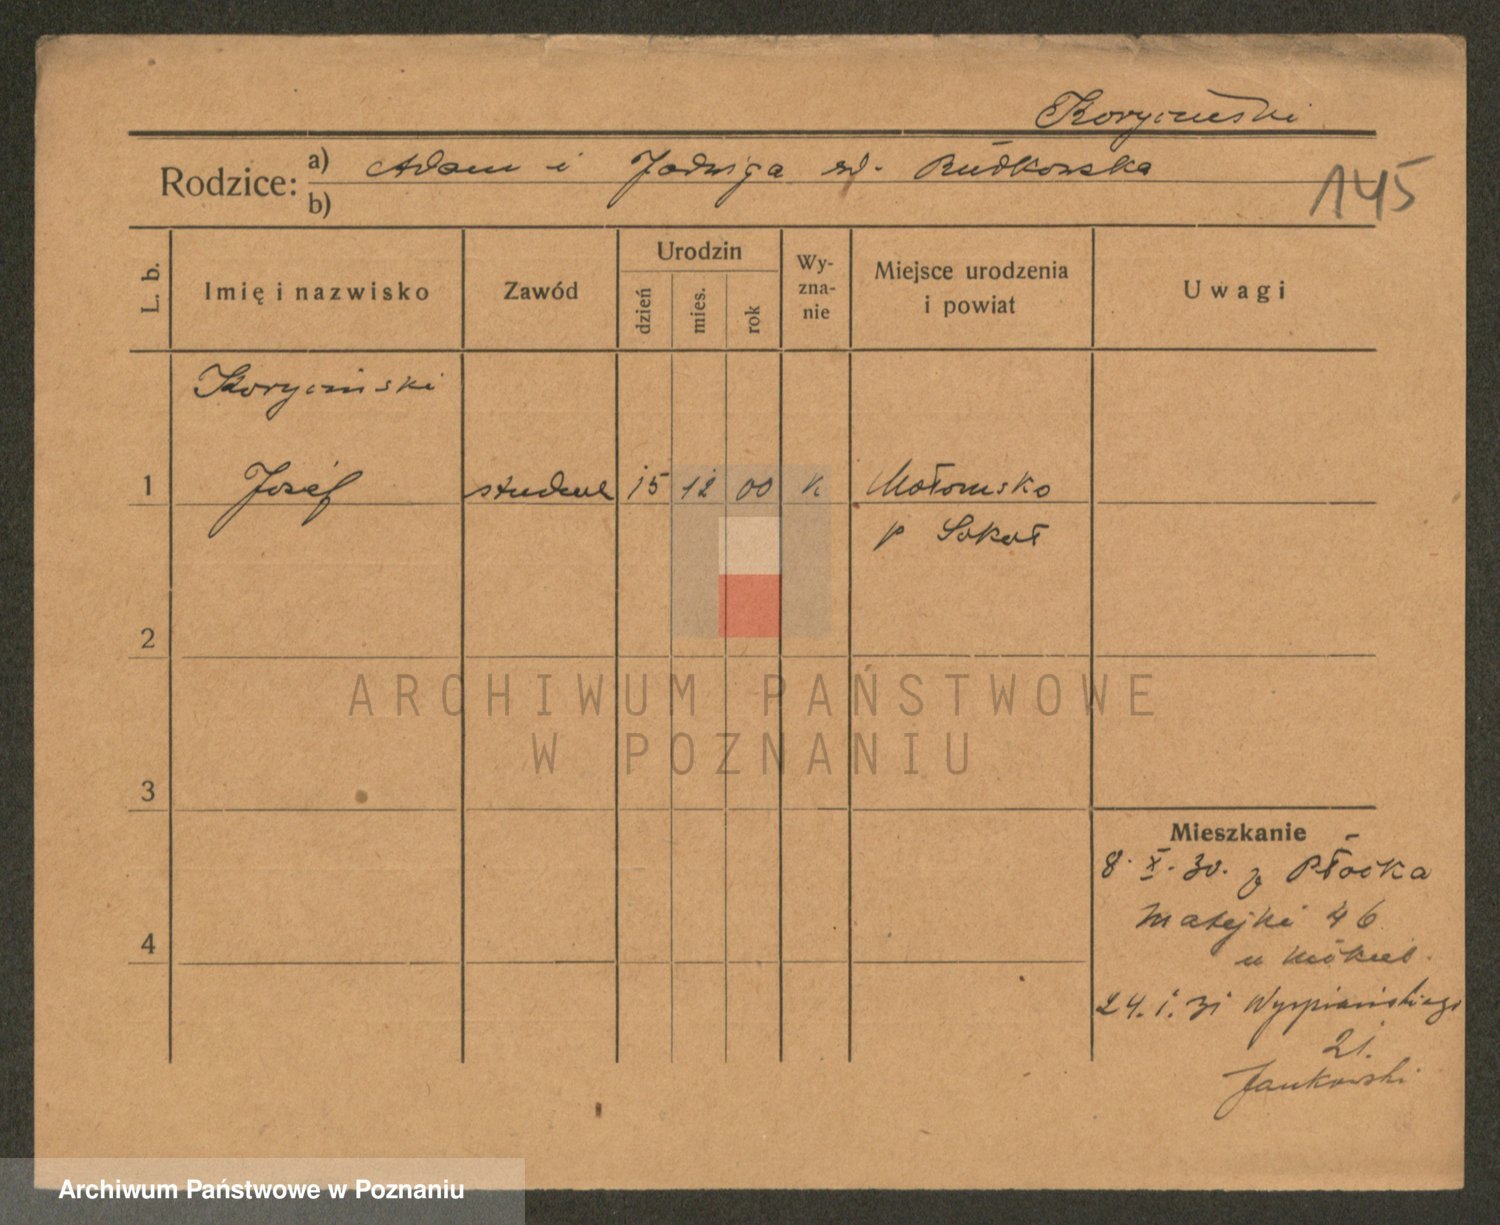 Koryciński
Rodzice: a) Adam i Jadwiga rd. Rudkowska
b)
145
L. b.
Imię i nazwisko
Zawód
Urodzin
dzień
mies.
rok
Wy-
zna-
nie
Miejsce urodzenia
i powiat
Uwagi
Koryciński
1 Józef student 15 12 00 k
p Sokoł
2
3
4
Mieszkanie
8. X. 30. z Płocka
Matejki 46
u
24. 1. 31 Wyspiańskiego
21.
Jankowski
ARCHIWUM PAŃSTWOWE
W POZNANIU
Archiwum Państwowe w Poznaniu